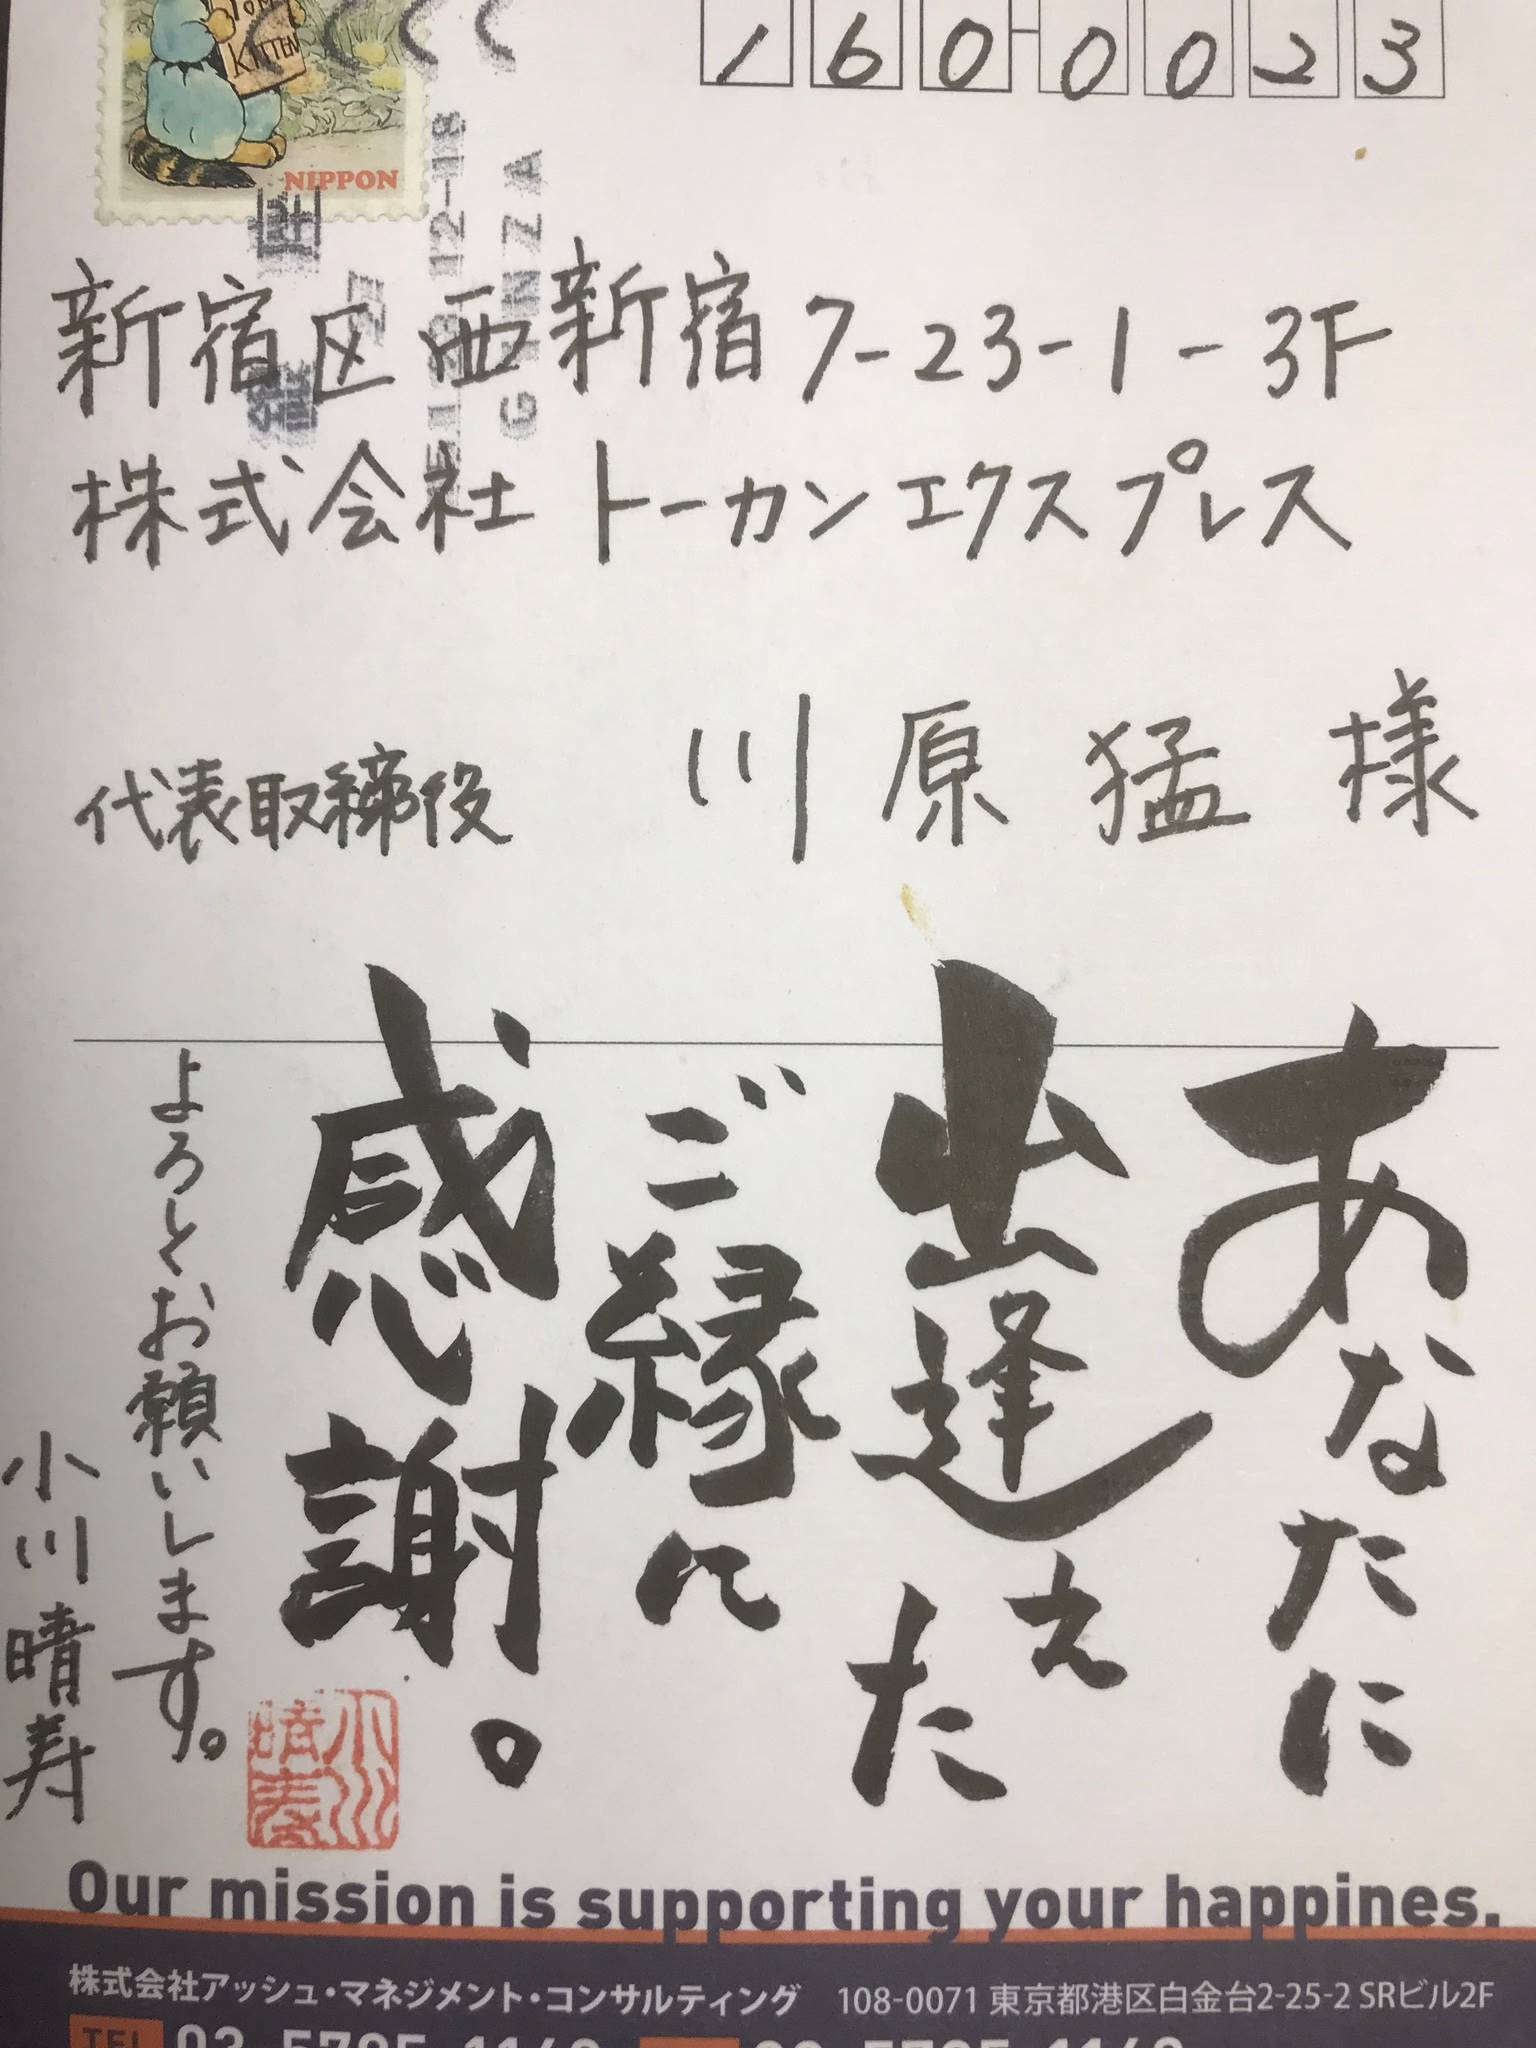 TOM
KITTEN
NIPPON
160-0023
12-18
GINZA
新宿区西新宿7-23-1-3F
株式会社トーカンエクスプレス
代表取締役 川原猛様
あなたに
出逢えた
ご縁に
感謝。
よろしくお願いします。
小川晴寿
小川
晴寿
Our mission is supporting your happines.
株式会社アッシュ・マネジメント・コンサルティング 108-0071 東京都港区白金台2-25-2 SRビル2F
TEL 03-5795-1160